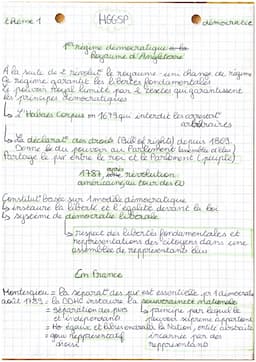 thème 1 HGGSP démocratie
1er régime démocratique
Royaume d'Angleterre
À la suite de 2 révolut° le royaume-uni change de régime
Ce régime garantit les libertés fondamentales
Le pouvoir Royal limité par 2 textes qui garantissent
les principes démocratiques
↳ L'Habeas Corpus en 1679 qui interdit les arrestat°
arbitraires
↳ La déclarat° des droits (Bill of rights) depuis 1869.
Donne du pouvoir au Parlement
Partage le pvr entre le roi et le Parlement (peuple)
1787 après révolution
américaine
Constitut° basée sur 1 modèle démocratique
↳ instaure la liberté et l'égalité devant la loi
↳ système de démocratie libérale
↳ respect des libertés fondamentales et
représentations des citoyens dans une
assemblée représentant
En France
Montesquieu = la séparat° des pvr est essentielle pr 1 démocratie
août 1789 = la DDHC instaure la souveraineté nationale
- séparation des pvrs ↳ principe par lequel le
et indépendant pouvoir suprême appartient
- égaux et libres à la Nation, entité abstraite
- gouv Représentatif incarnée par des
représentants